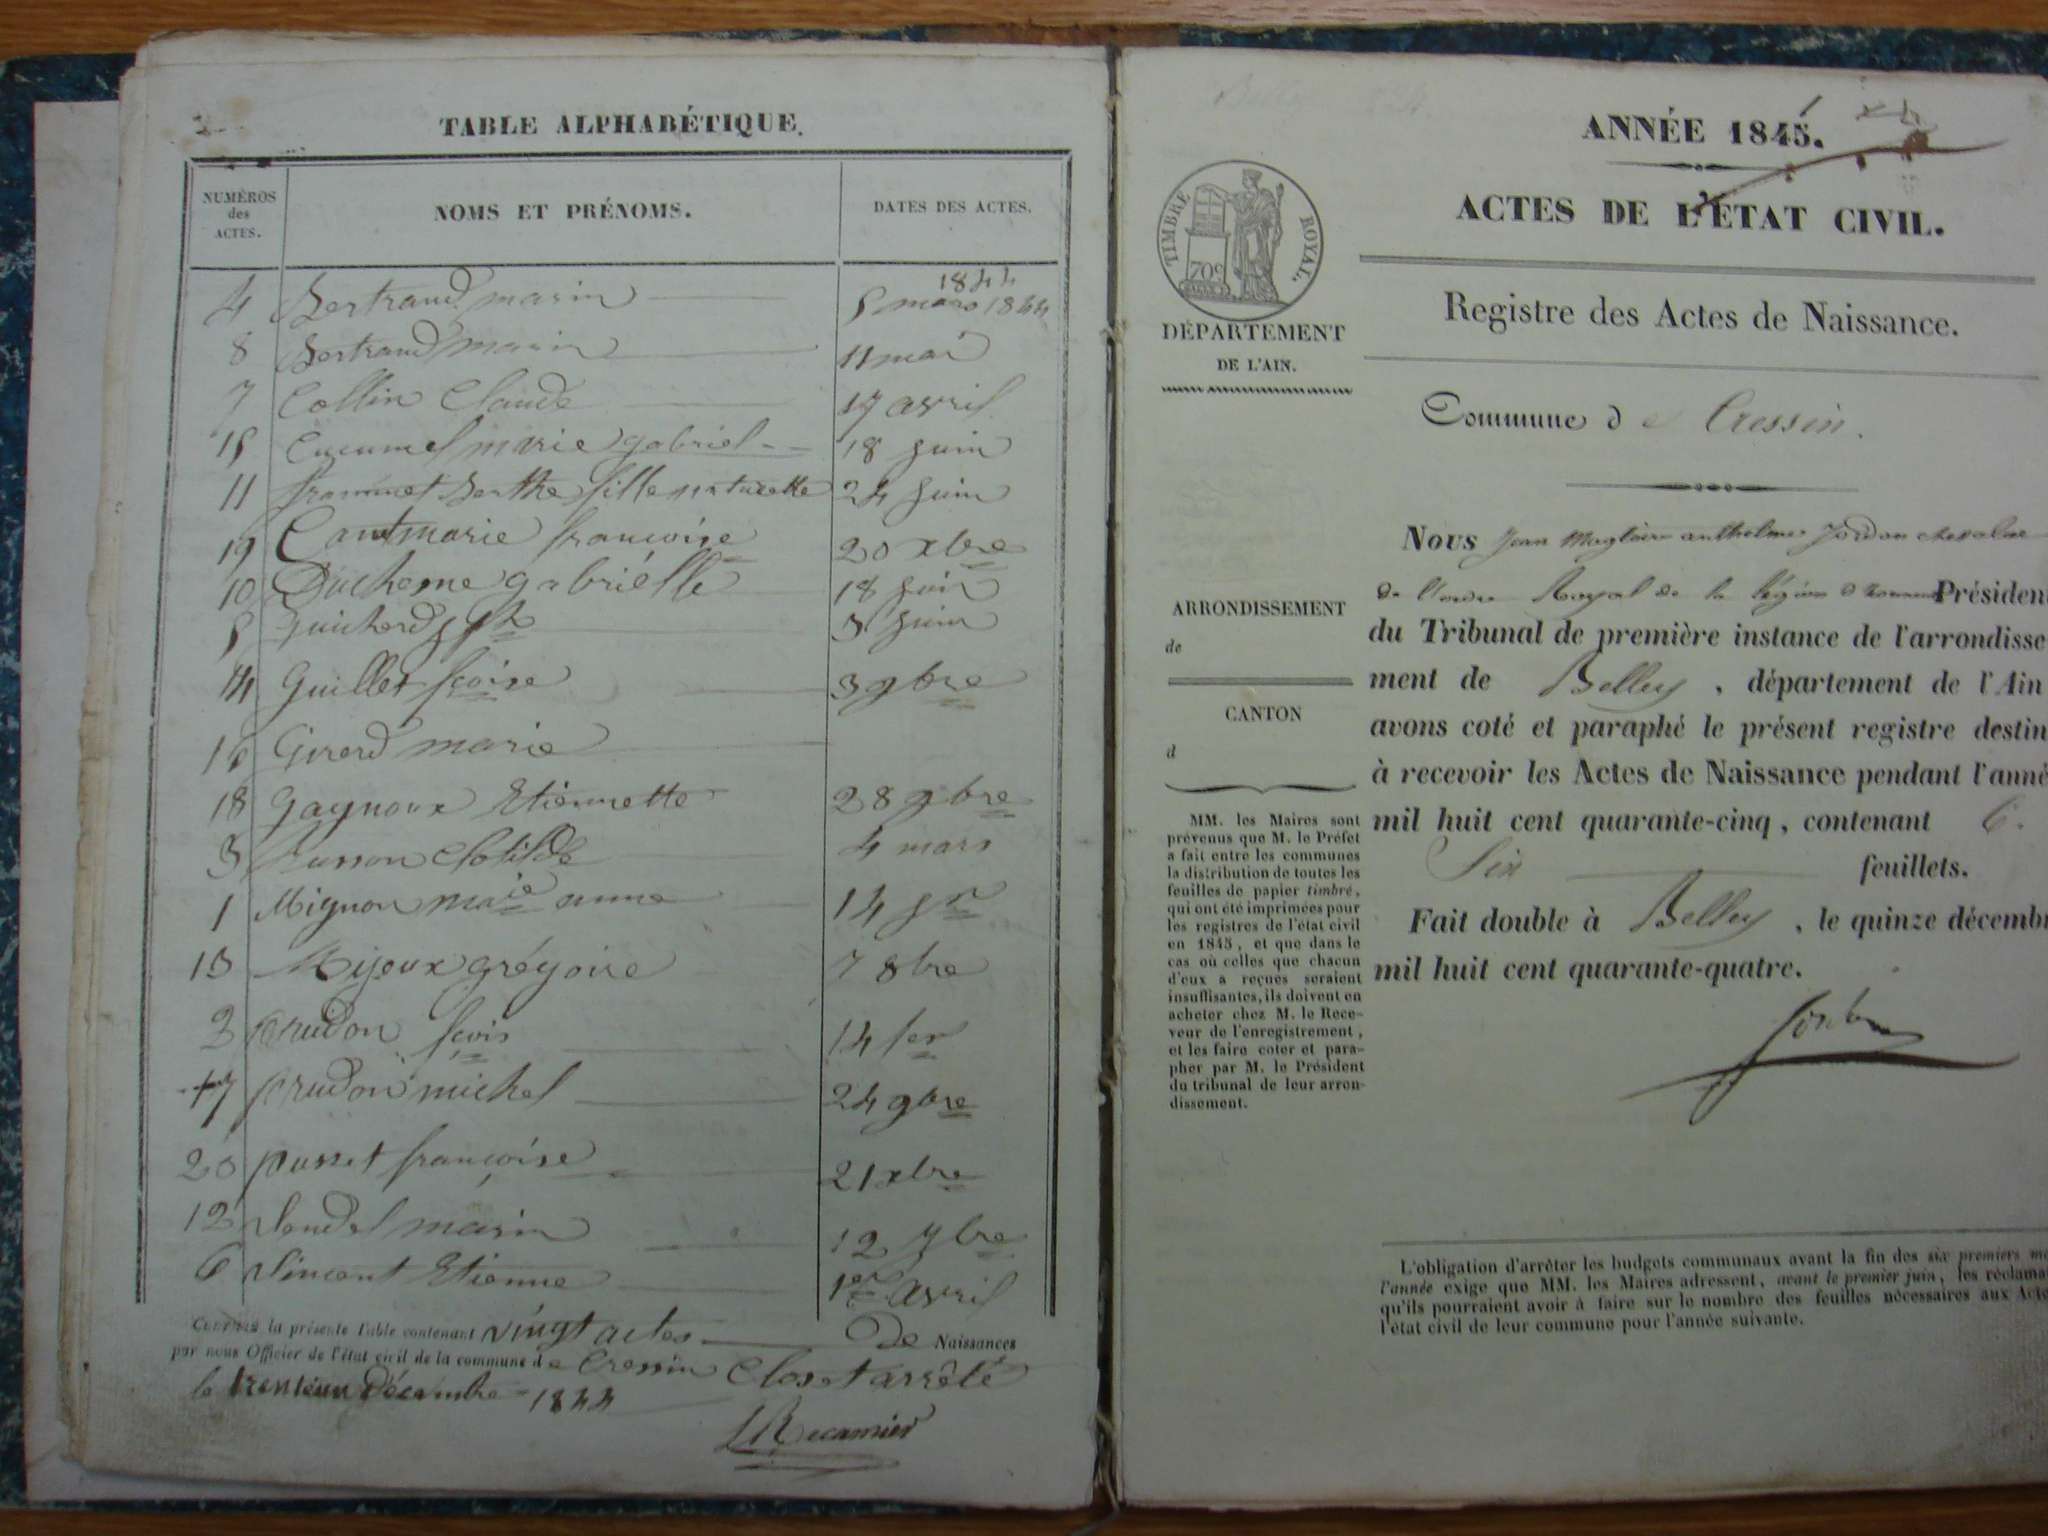 TABLE ALPHABÉTIQUE.
NUMÉROS des ACTES.
NOMS ET PRÉNOMS.
DATES DES ACTES.
1844
4 Bertrand marin 5 mars 1844
8 Bertrand marin 11 mai
7 Collin Claude 17 avril
15 marie gabriel 18 juin
11 Berthe fille naturelle 24 juin
19 marie françoise 20 xbre
10 Duchesne gabriélle 18 juin
5 Guicherd 3 juin
14 Guillet fçoise 3 9bre
16 Girerd marie
18 Gaynoux Etiennette 28 9bre
3 Clotilde 4 mars
1 Mignon marie anne 14 jer
13 Mijoux grégoire 7 8bre
2 Prudon fçois 14 fer
17 prudon michel 24 9bre
20 pusset françoise 21 xbre
12 marin 12 7bre
6 Vincent Etienne 1er avril
CERTIFIÉE la présente Table contenant vingt actes De Naissances
par nous Officier de l'état civil de la commune de Cressin Clos et arrêté
le trente un Décembre 1844
Recamier
ANNÉE 1845.
ACTES DE L'ÉTAT CIVIL.
TIMBRE ROYAL.
70c
Registre des Actes de Naissance.
DÉPARTEMENT
DE L'AIN.
Commune de Cressin.
Nous Jean Magloire anthelme Jordan chevalier
de l'ordre Royal de la légion d'honneur Président
du Tribunal de première instance de l'arrondisse-
ment de Belley, département de l'Ain
avons coté et paraphé le présent registre destin
à recevoir les Actes de Naissance pendant l'anné
mil huit cent quarante-cinq, contenant 6.
Six feuillets.
Fait double à Belley, le quinze décemb
mil huit cent quarante-quatre.
ARRONDISSEMENT
de
CANTON
d
MM. les Maires sont
prévenus que M. le Préfet
a fait entre les communes
la distribution de toutes les
feuilles de papier timbré,
qui ont été imprimées pour
les registres de l'état civil
en 1845, et que dans le
cas où celles que chacun
d'eux a reçues seraient
insuffisantes, ils doivent en
acheter chez M. le Rece-
veur de l'enregistrement,
et les faire coter et para-
pher par M. le Président
du tribunal de leur arron-
dissement.
L'obligation d'arrêter les budgets communaux avant la fin des six premiers m
l'année exige que MM. les Maires adressent, avant le premier juin, les réclama
qu'ils pourraient avoir à faire sur le nombre des feuilles nécessaires aux Acte
l'état civil de leur commune pour l'année suivante.